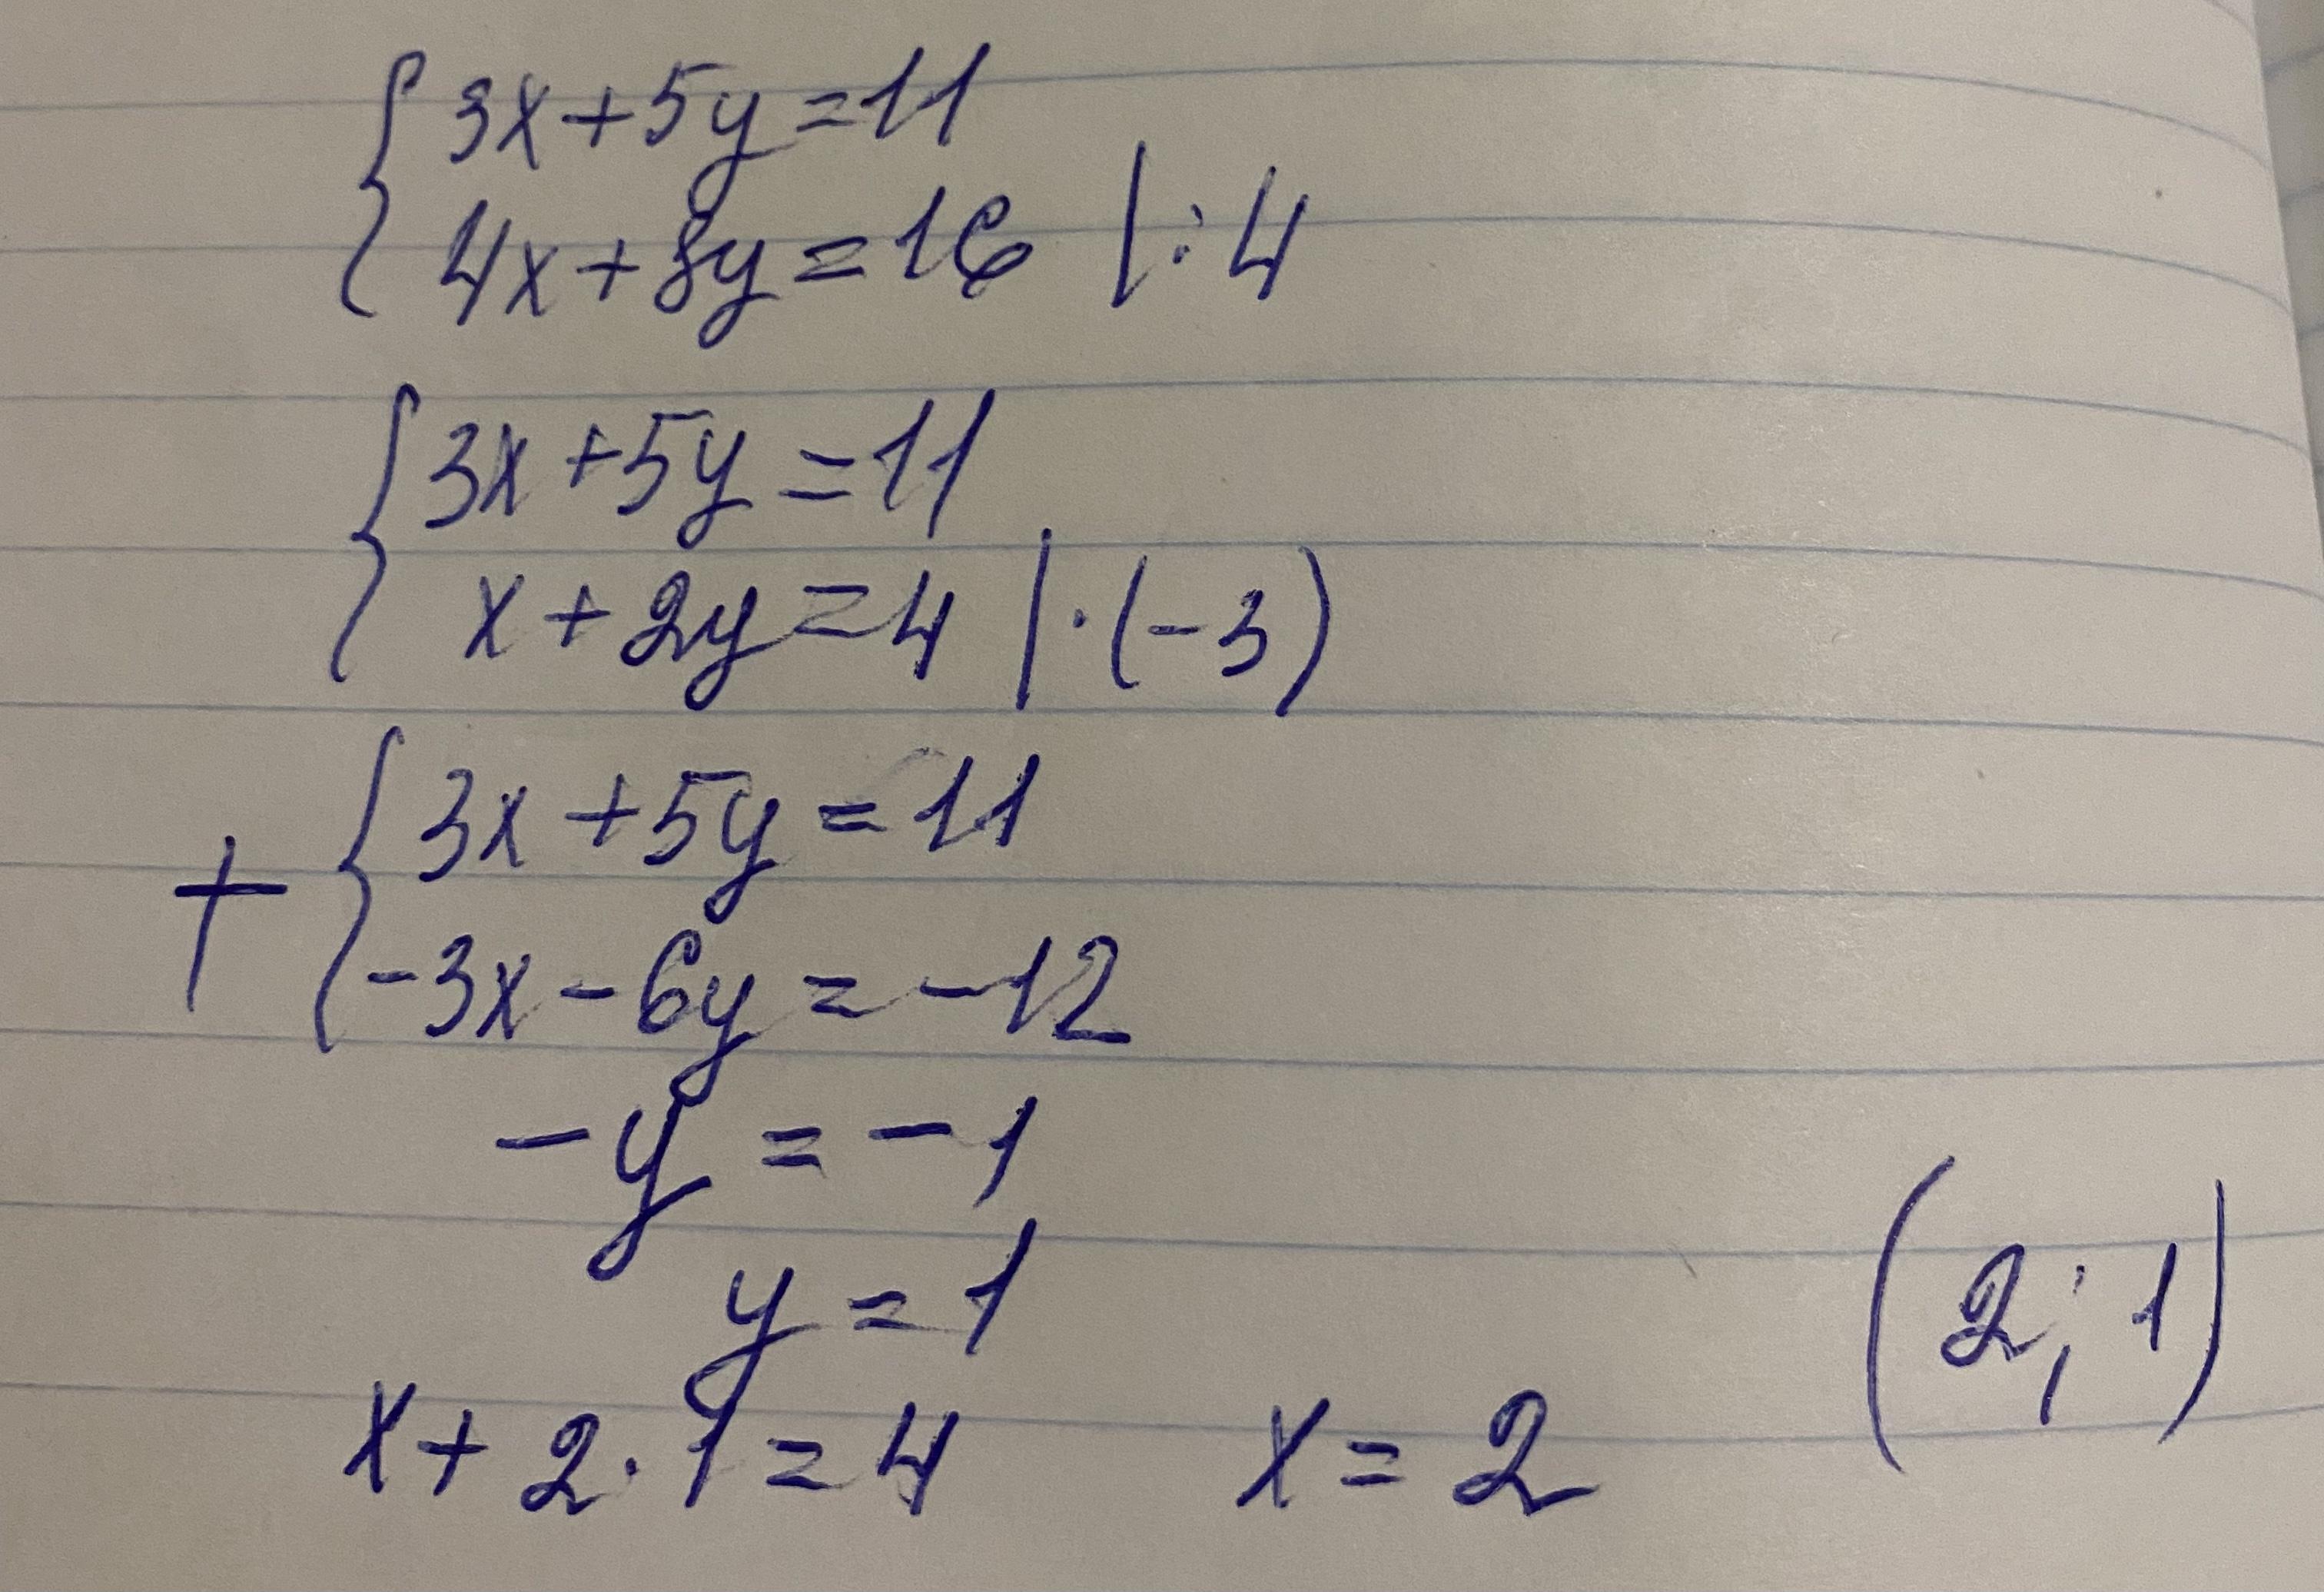 3x+5y=11
4x+8y=16 |:4
3x+5y=11
x+2y=4 |·(-3)
3x+5y=11
+
-3x-6y=-12
-y=-1
y=1
(2;1)
x+2·1=4 x=2